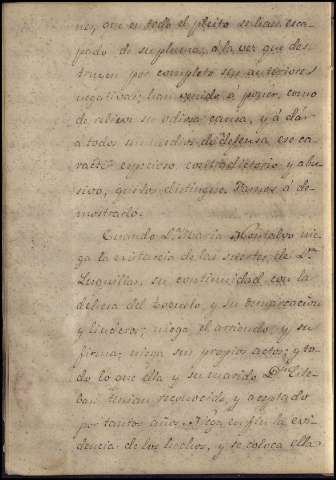 nes, que en todo el pleito se han esca
pado de su pluma, á la vez que des
truyen por completo sus anteriores
negativas, han venido á poner, como
de relieve su odiosa causa, y á dár
a todos sus medios de defensa ese ca
racter especioso contradictorio y abu
sivo, que los distingue. Vamos á de
mostrarlo.
Cuando Dª Maria Montalvo nie
ga la existencia de las suertes, de
su continuidad con la
dehesa del y su demarcacion
y linderos; niega, el arriendo, y su
firma; niega sus propios actos; y to
do lo que ella y su marido Dn Este
ban tenian reconocido, y aceptado
por tantos años. Niega en fin la evi
dencia de los hechos, y se coloca ella